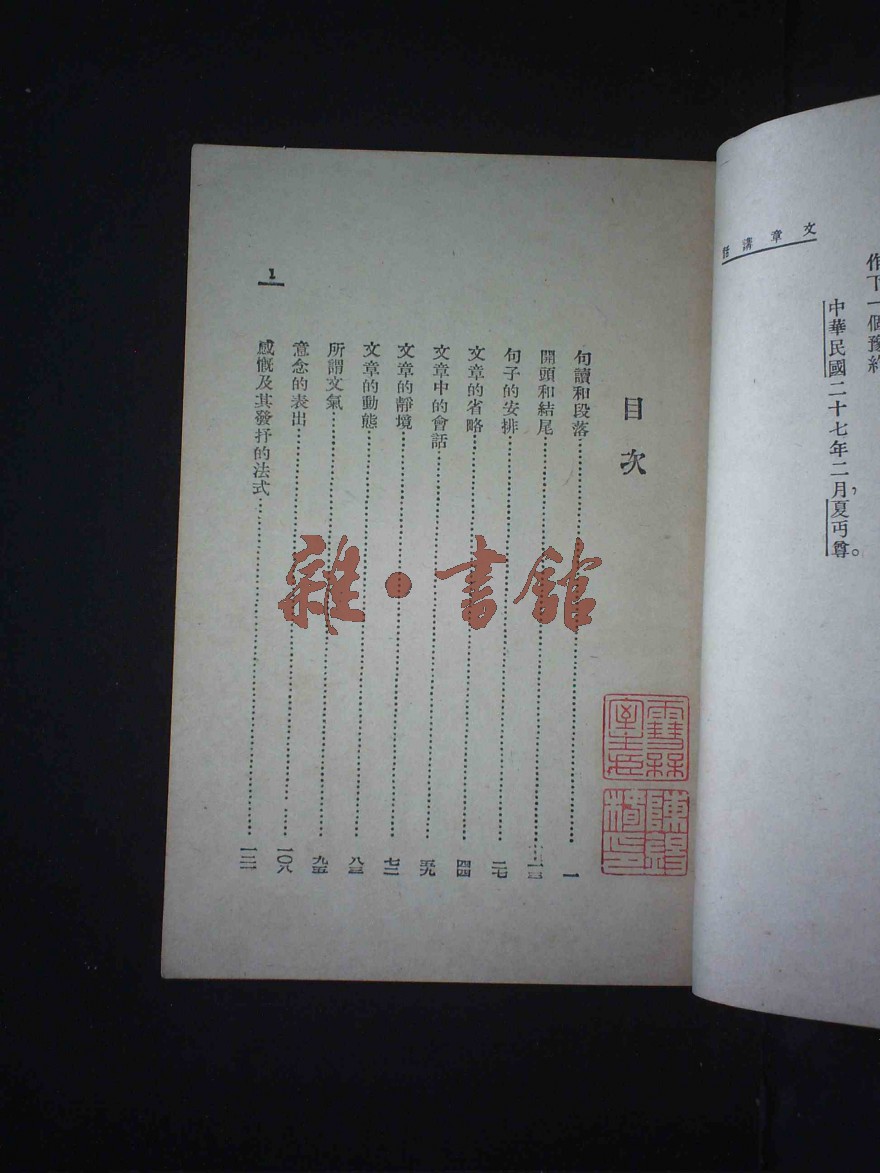 文章講話
作下一個豫約
中華民國二十七年二月,夏丏尊。
目次
句讀和段落……一
開頭和結尾……一三
句子的安排……二七
文章的省略……四四
文章中的會話……五九
文章的靜境……七二
文章的動態……八三
所謂文氣……九五
意念的表出……一〇八
感慨及其發抒的法式……一二一
1
雜·書館